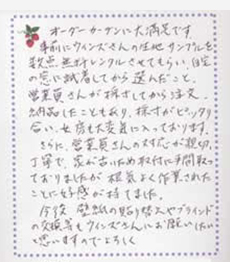 オーダーカーテンに大満足です。
事前にウインズさんの生地サンプルを
数点無料レンタルさせてもらい、自宅
の窓に試着してから選んだこと、
営業員さんが採寸してから注文、
納品したこともあり、採寸がピッタリ
合い、女房も大変気に入っております。
さらに、営業員さんの対応が親切、
丁寧で、家が古いため取付に手間取っ
ておりましたが根気よく作業された
ことに好感が持てました。
今後、壁紙の貼り替えやブラインド
の交換等もウインズさんにお願いしたい
と思いますのでよろしく